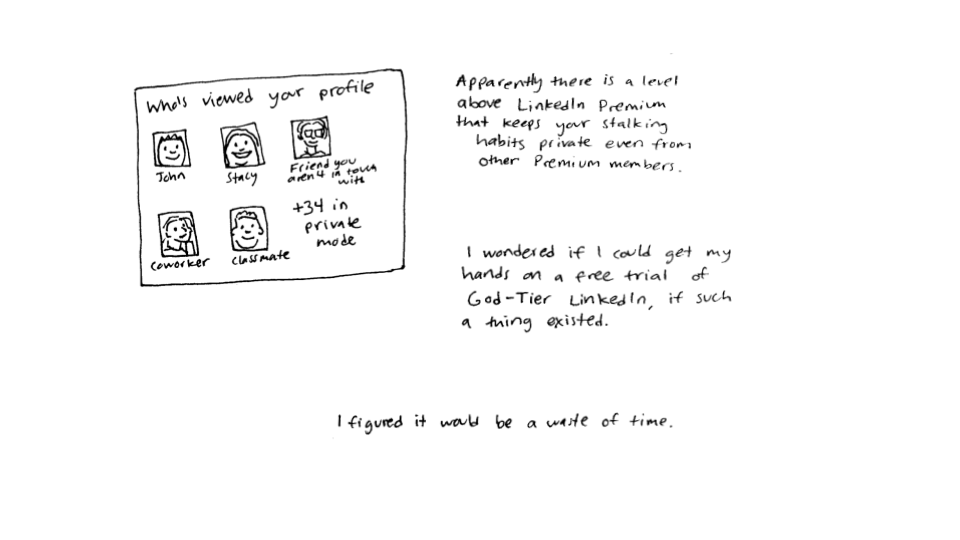 Who's viewed your profile
John
Stacy
Friend you
aren't in touch
with
Coworker
Classmate
+34 in
private
mode
Apparently there is a level
above LinkedIn Premium
that keeps your stalking
habits private even from
other Premium members.
I wondered if I could get my
hands on a free trial of
God-Tier LinkedIn, if such
a thing existed.
I figured it would be a waste of time.